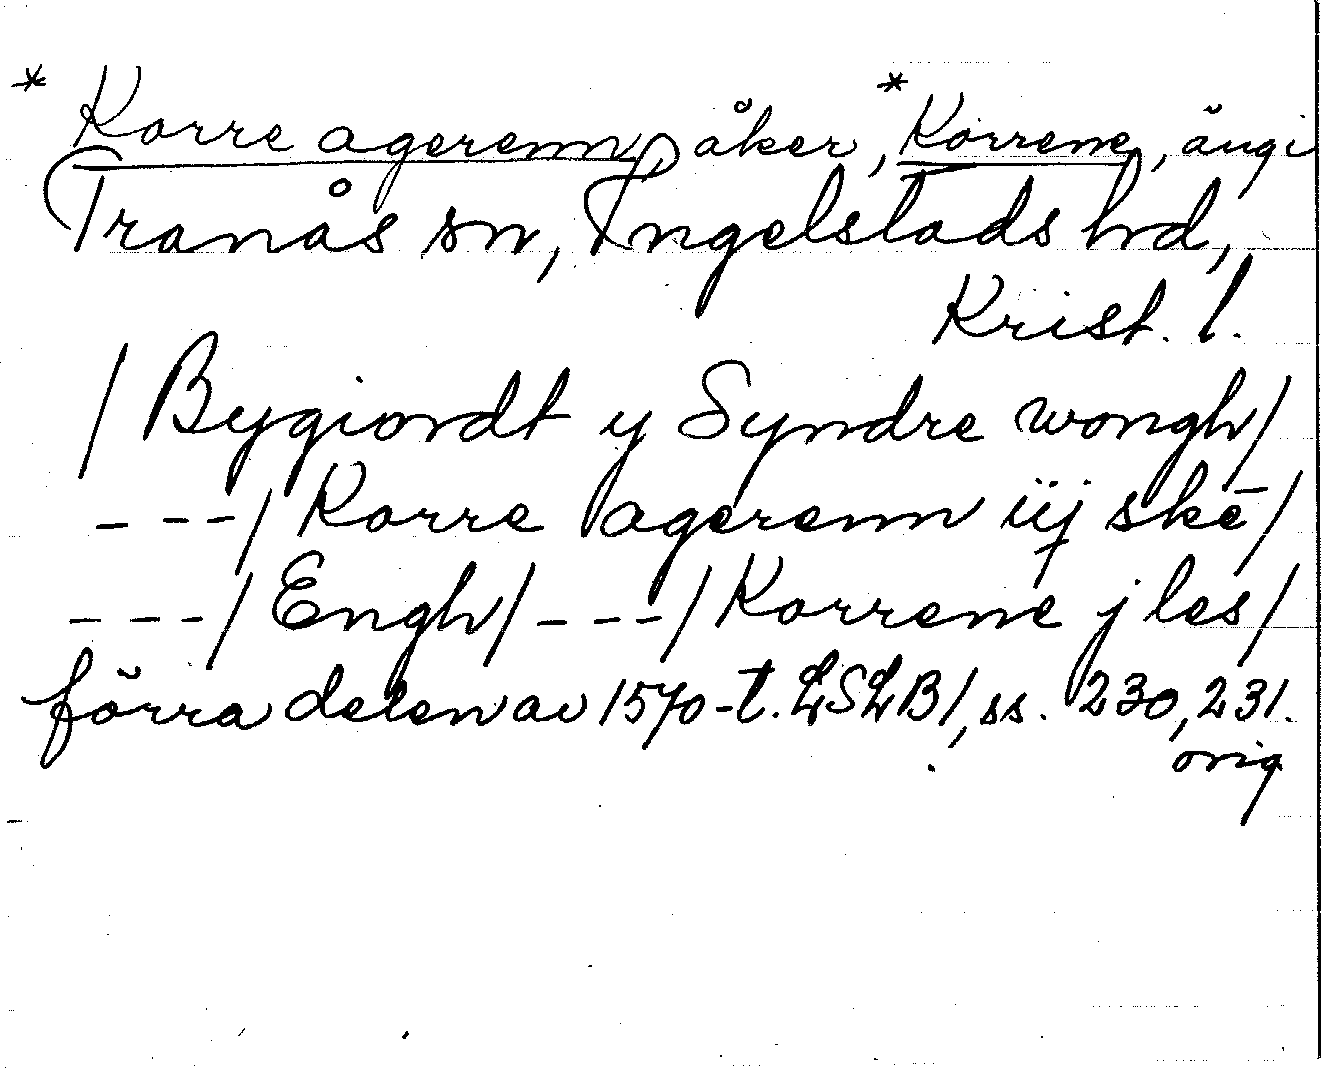 * Korre agerenn, åker, * Korrene, äng i
Tranås sn, Ingelstads hd,
Krist. l.
/ Bygiordt y Syndre wongh /
- - - / Korre agerenn iij skē /
- - - / Engh / - - - / Korrene j les /
förra delen av 1570-t. LSLB 1, ss. 230, 231.
orig